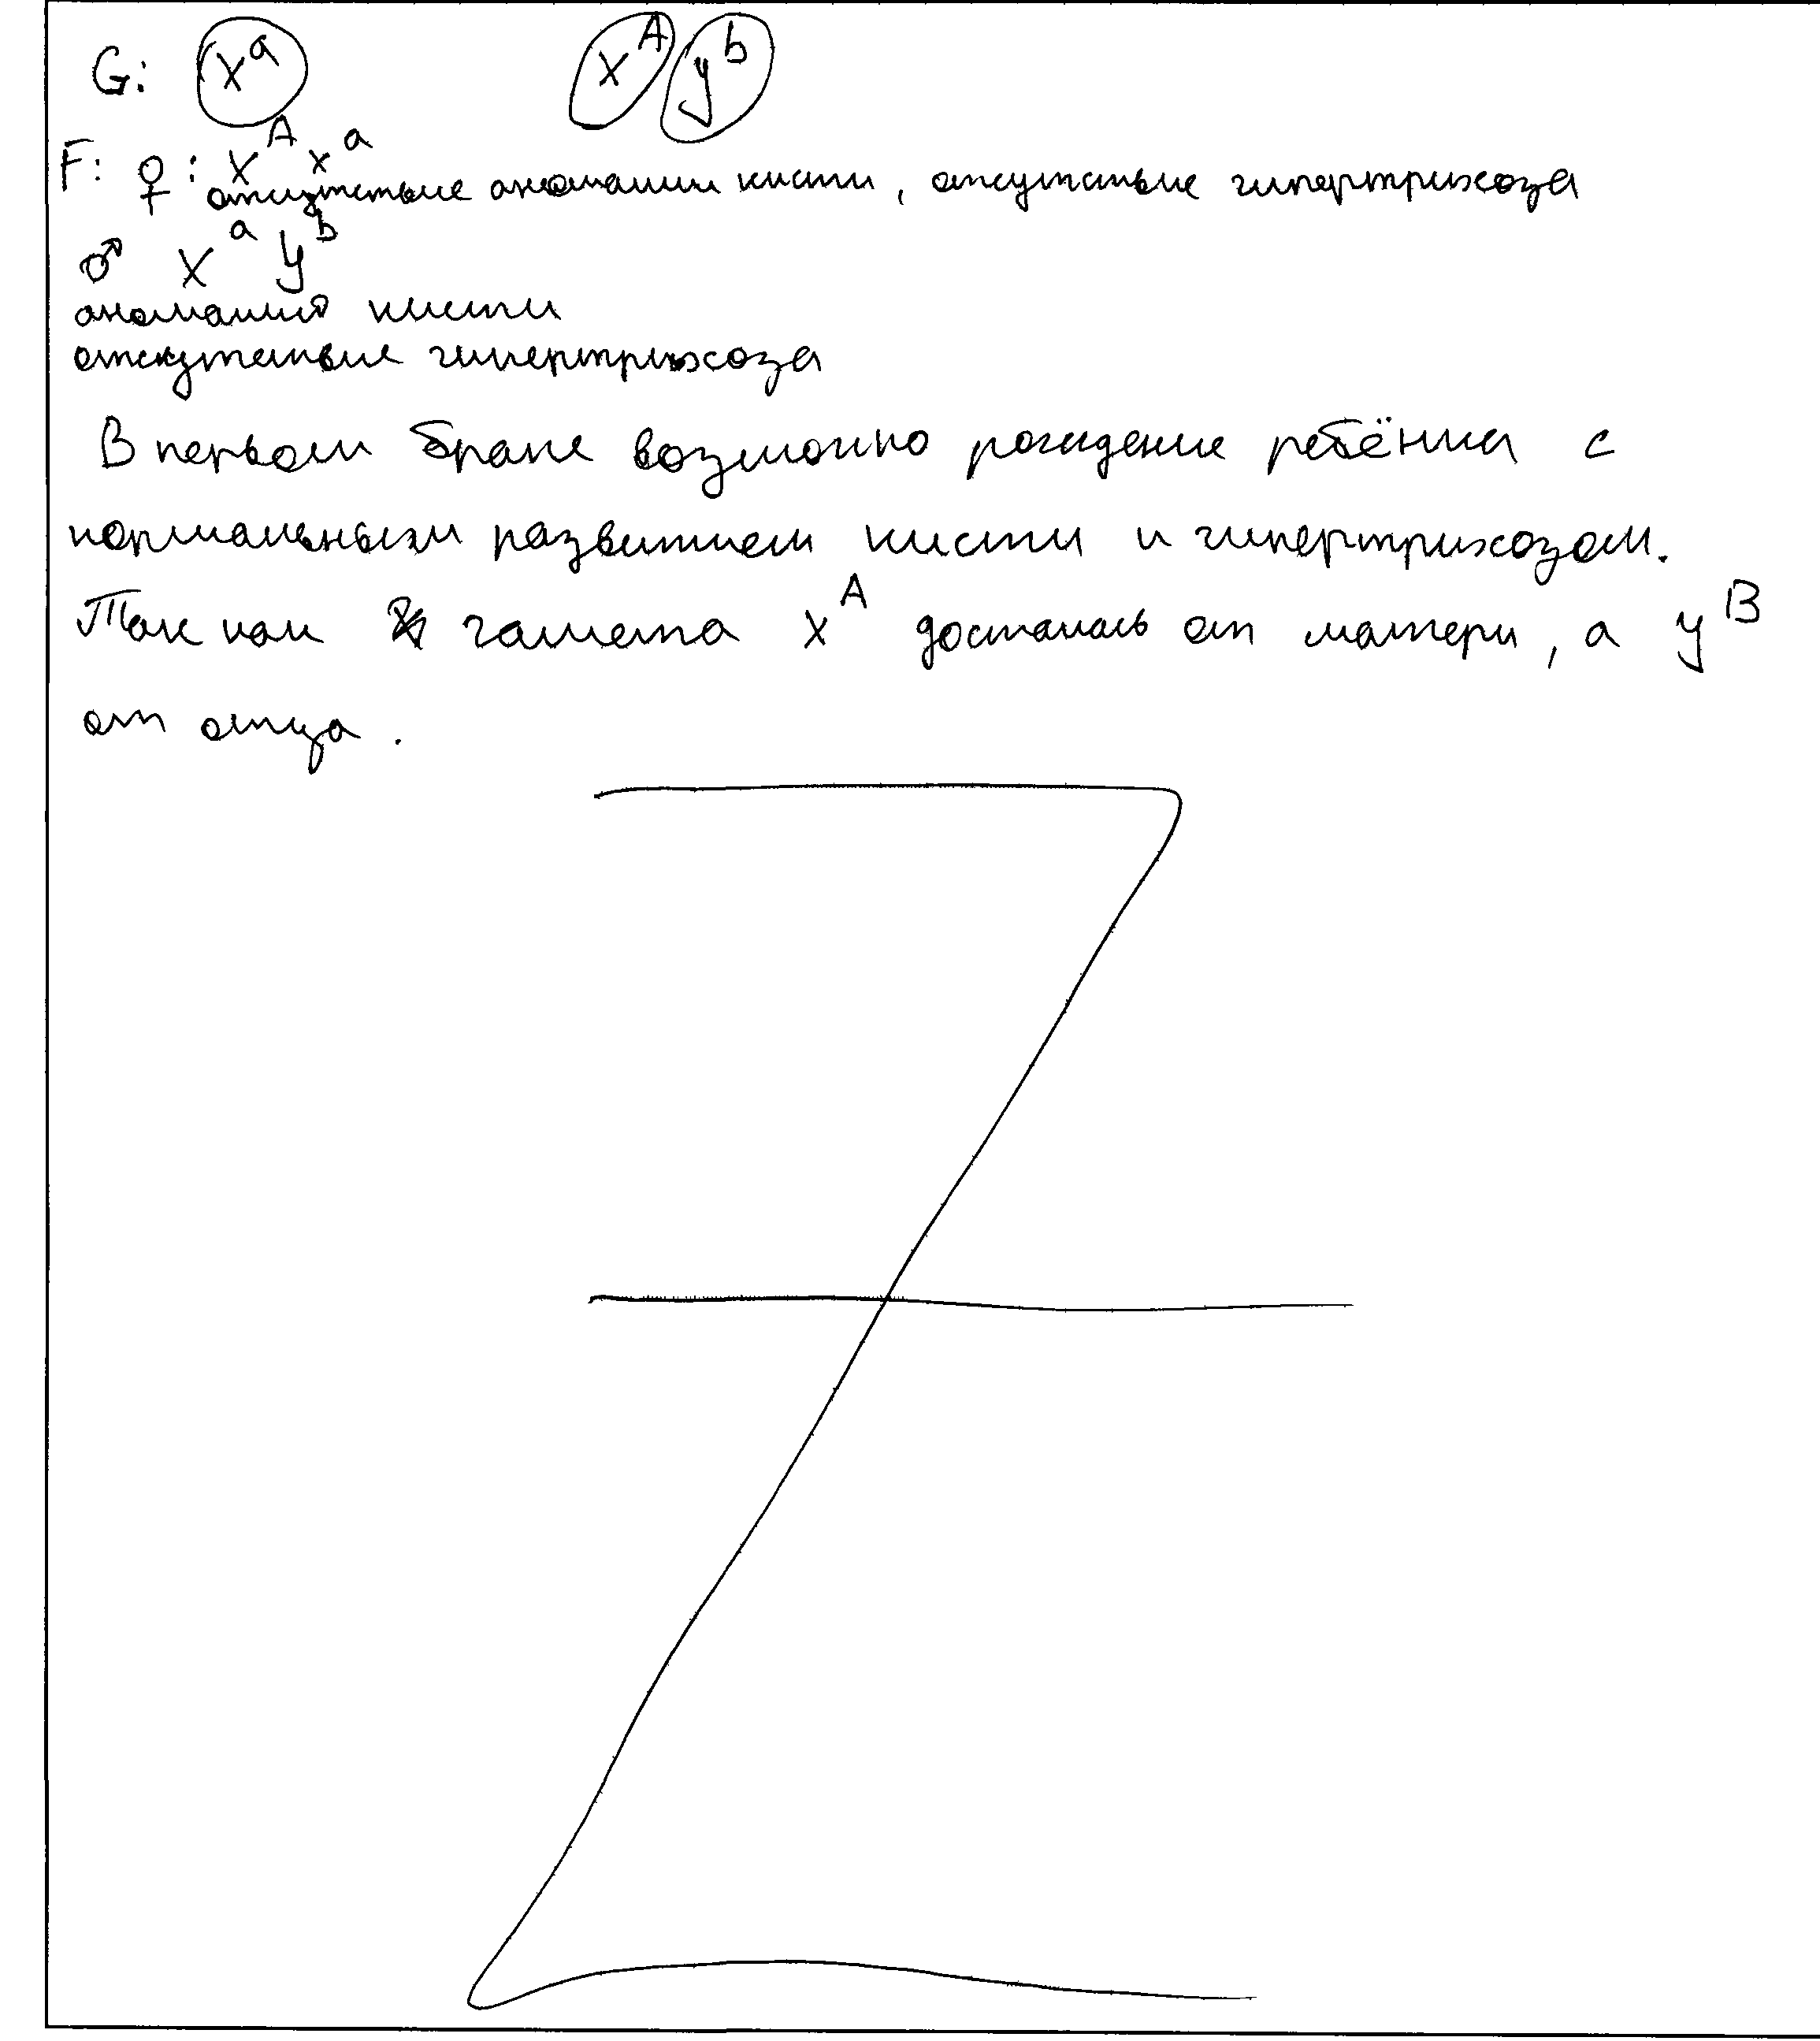 G: Xᵃ Xᴬ yᵇ
F: ♀: Xᴬ xᵃ
отсутствие аномалии кисти, отсутствие гипертрихоза
♂ Xᵃ yᵇ
аномалия кисти
отсутствие гипертрихоза
В первом браке возможно рождение ребёнка с
нормальным развитием кисти и гипертрихозом.
Так как гамета xᴬ досталась от матери, а yᴮ
от отца.